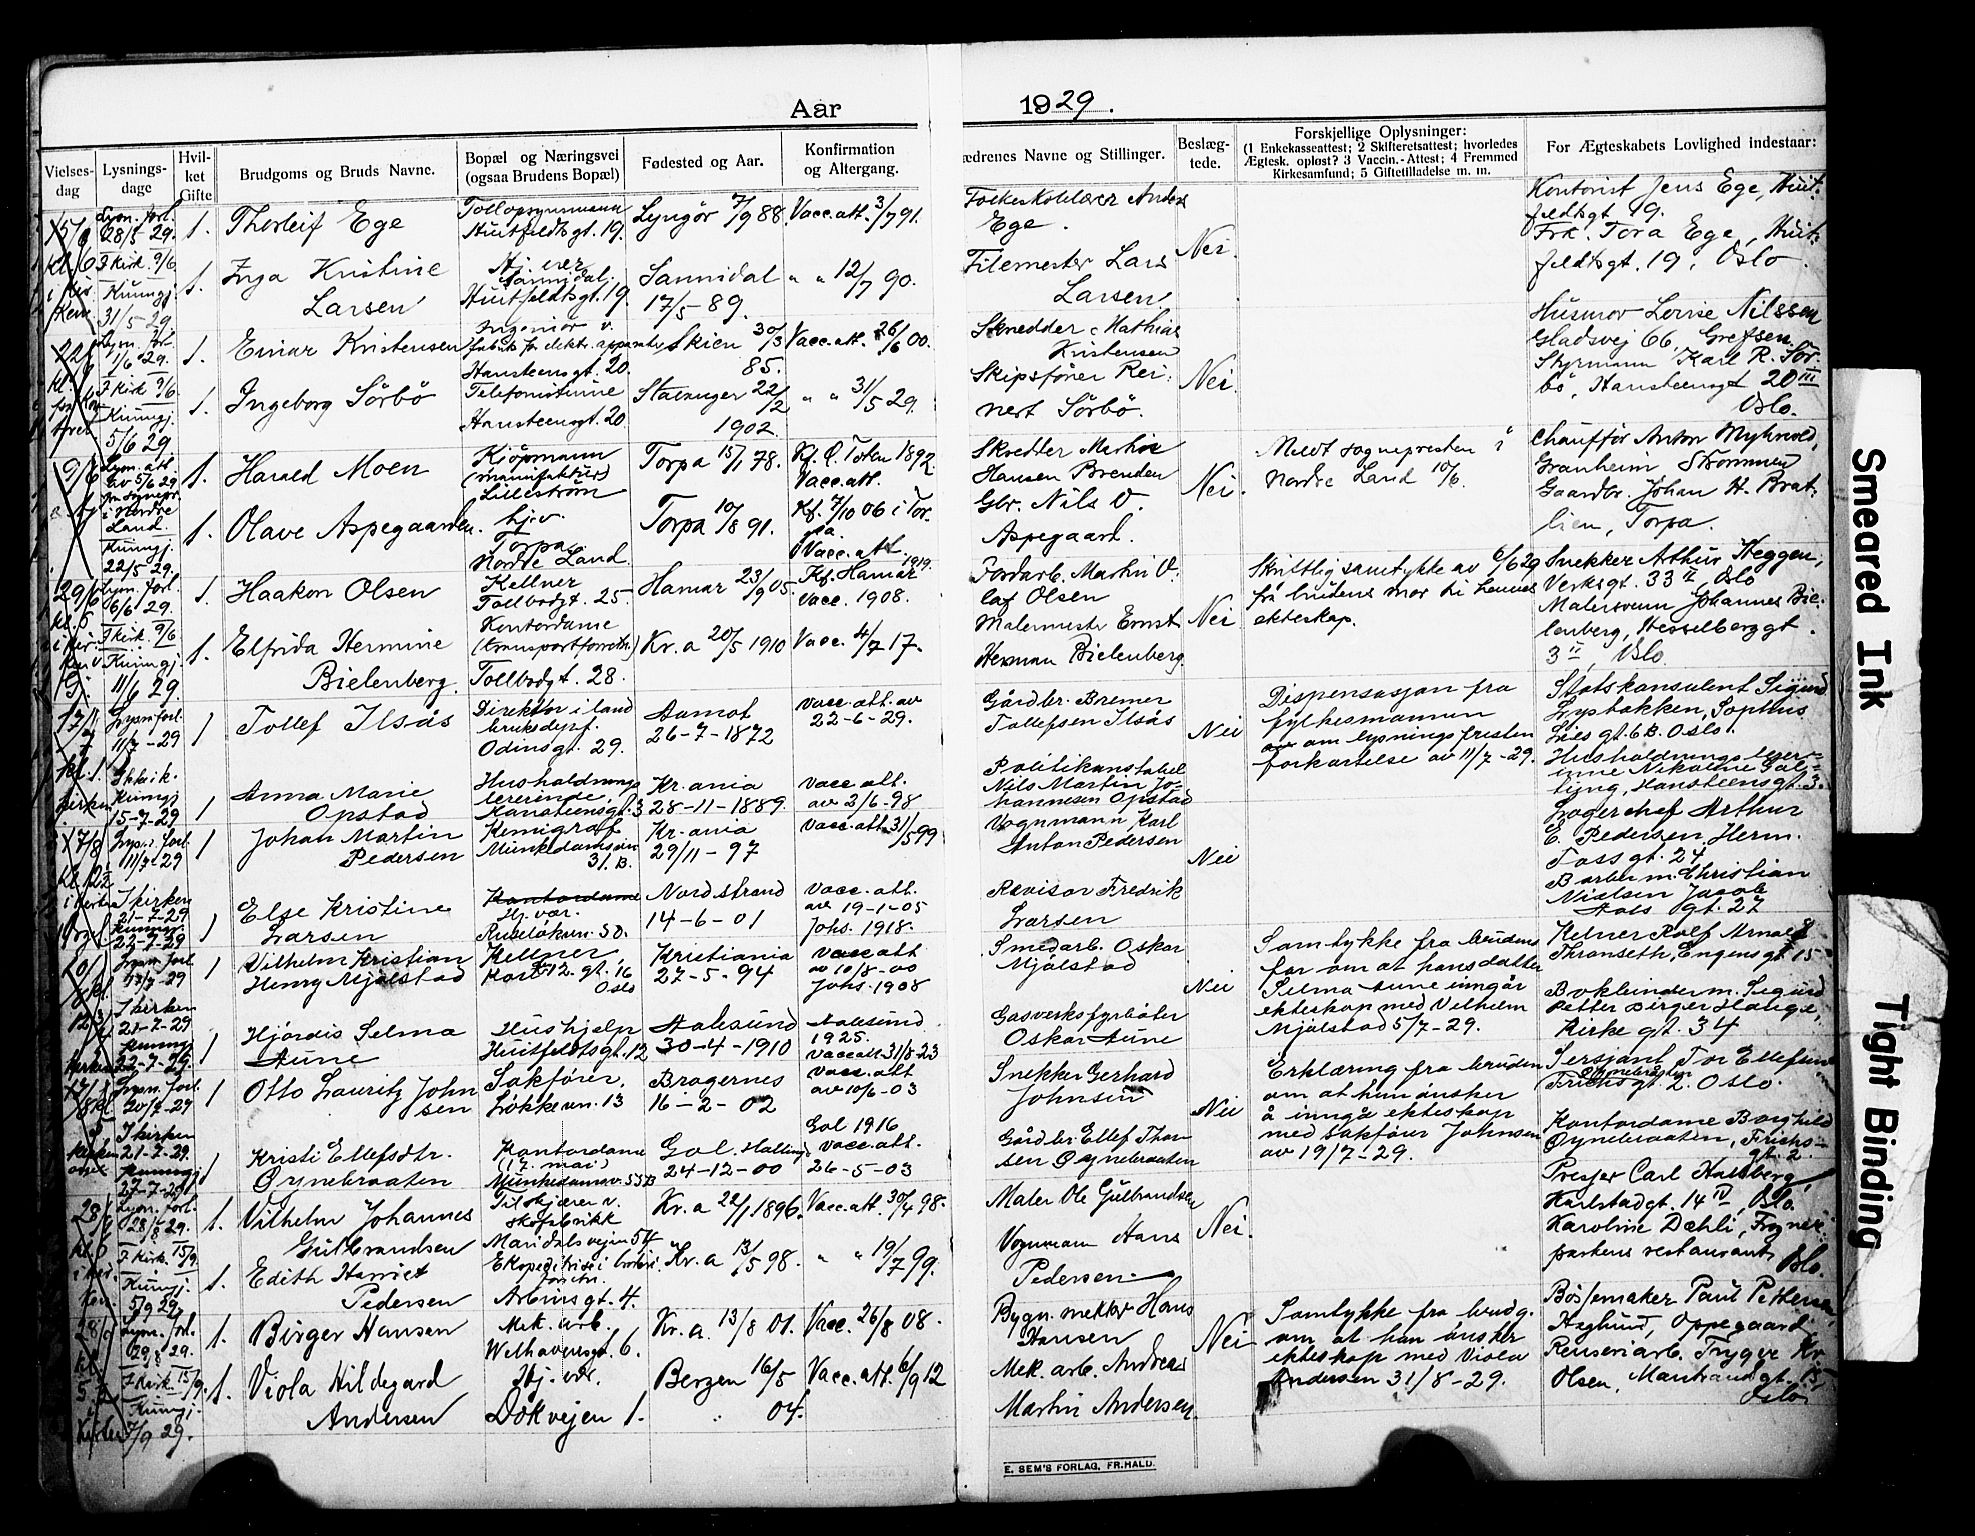 Aar 1929.
Vielses-dag
Lysnings-dage
Hvil-ket Gifte
Brudgoms og Bruds Navne.
Bopæl og Næringsvei (ogsaa Brudens Bopæl)
Fødested og Aar.
Konfirmation og Altergang.
ædrenes Navne og Stillinger.
Beslæg-tede.
Forskjellige Oplysninger:
(1 Enkekasseattest; 2 Skifteretsattest; hvorledes Ægtesk. opløst? 3 Vaccin.-Attest; 4 Fremmed Kirkesamfund; 5 Giftetilladelse m. m.
For Ægteskabets Lovlighed indestaar:
Lysn. forl. 28/5 29.
1. Thorleif Ege
Tollopsynsmann Huitfeldtsgt. 19.
Lyngör 7/9 88.
Vacc. att. 3/7 91.
Folkeskolelærer Anders Ege.
Nei.
Kontorist Jens Ege, Huitfeldtsgt. 19.
Frk. Tora Ege, Huitfeldtsgt. 19, Oslo.
F. kirk. 9/6 Kunngj. 31/5 29.
1. Inga Kristine Larsen
Hj. vær. Sannidal, Huitfeldtsgt. 19.
Sannidal 17/5 - 89.
" " 12/7 90.
Filemester Lars Larsen.
Lysn. forl. 1/6 29.
1. Einar Kristensen
Ingeniör v. fabrik for elektr. apparater, Hansteensgt. 20.
Skien 30/3 85.
Vacc. att. 26/6 00.
Skredder Mathias Kristensen
Nei.
Husmor Lovise Nilssen Gladsvej 66, Grefsen.
Styrmann Karl R. Sörbö, Hansteensgt 20 III Oslo.
F. kirk 9/6 Kunngj. 5/6 29
1. Ingeborg Sörbö
Telefonistinne Hansteensgt. 20
Stavanger 22/2 1902.
" " 31/5 29.
Skipsförer Reinert Sörbö.
9/6
Lysn. att. av 5/6 29 fra sognepr. i Nordre Land.
1. Harald Moen
Kjöpmann (manufaktur) Lilleström
Torpa 15/1 78.
Kf. Ö. Toten 1892 Vacc. att.
Skredder Markus Hansen Brenden
Nei.
Meldt sognepresten i Nordre Land 10/6.
Chaufför Anton Myhrvold, Granheim Strömmen
Gaardbr. Johan H. Bratlien, Torpa.
Kunngj. 22/5 29.
1. Olave Aspegaarden.
hj. v. Torpa Nordre Land.
Torpa 10/8 91.
Kf. 7/10 06 i Torpa. Vacc. att.
Gbr. Nils O. Aspegaard.
29/6
Lysn. forl. 6/6 29.
1. Haakon Olsen
Kellner Tollbodgt. 25.
Hamar 23/9 05.
Kf. Hamar 1919. Vacc. 1908.
Jordarb. Martin Olaf Olsen
Nei
Skriftlig samtykke av 6/6 29 fra brudens mor til hennes ekteskap.
Snekker Arthur Heggen, Verksgt. 33 II, Oslo
Malersvenn Johannes Bielenberg, Hesselberggt. 3 II, Oslo.
F. kirk. 9/6 Kunngj. 11/6 29.
1. Elfrida Hermine Bielenberg.
Kontordame (transportforretn.) Tollbodgt. 28.
Kr.a 20/5 1910
Vacc. 4/7 17.
Malermester Ernst Herman Bielenberg
17/7
Lysn. forl. 11/7-29
1 Tollef Ilsås
Direktör i landbruksdepf. Odinsgt. 29.
Aamot 26-7-1872
Vacc. att. av 22-6-29.
Gårdbr. Bremer Tollefsen Ilsås
Nei
Dispensasjon fra fylkesmannen om lysningsfristen forkortelse av 11/7-29.
Statskonsulent Sigurd Lysbakken, Sophus Lies gt. 6B. Oslo.
Kunngj 15-7-29
1 Anna Marie Opstad
Husholdningslererinde, Hansteensgt. 3
Kr.ania 28-11-1889.
Vacc. att. av 2/6-98
Politikonstabel Nils Martin Johannesen Opstad
17/8
Lysn. forl. 11/7-29
1 Johan Martin Pedersen
Kemigraf Munkedamsvn 31. B.
Kr.ania 29/11-97
Vacc. att. 31/5 99
Vognmann Karl Anton Pedersen
Nei
Lagerchef Arthur E. Pedersen, Herm. Foss gt. 24
Barber m. Christian Nielsen Jacob Aals gt. 27
I kirken 21-7-29 Kunngj. 22-7-29
1 Else Kristine Larsen
Kontordame Hj. vær. Ruselökvn. 50.
Nordstrand 14-6-01
Vacc. att. av 19-1-05 Johs. 1918.
Revisor Fredrik Larsen
Lysn. forl. 13/7-29
1 Vilhelm Kristian Henry Mjålstad
Kellner Karl 12. gt. 16 Oslo
Kristiania 27-5-94
Vacc att av 10/8-00 Johs. 1908
Smedarb. Oskar Mjålstad
Nei
Samtykke fra brudens far om at hans datter Selma Aune inngår ekteskap med Vilhelm Mjålstad 5/7-29.
Kelner Rolf Arnold Thranseth, Engensgt. 15
Bokbinder m. Sigurd Petter Birger Hauge, Kirke gt. 34
I kirken 21-7-29 Kunngj 22-7-29.
1 Hjördis Selma Aune
Hushjelp Huitfeldtsgt. 12
Aalesund 30-4-1910
Aalesund 1925. Vacc att. 31/8-23
Gasverksfyrböter Oskar Aune
Lysn. forl. 20/7-29
1 Otto Lauritz Johnsen
Sakförer, Lökkevn. 13
Bragernes 16-2-02
Vacc. att av 10/6-03
Snekker Gerhard Johnsen
Nei
Erklæring fra bruden om at hun ønsker å inngå ekteskap med sakförer Johnsen av 19/7-29.
Sersjant Tor Ellefsen Öynebråten Frichs gt. 2. Oslo.
Kontordame Borghild Öynebraaten, Frichs gt. 2.
I kirken 21-7-29. Kunngj 27-7-29
1 Kristi Ellefsdtr. Öynebraaten
Kontordame (17. mai) Munkedamsv. 53B
Gol, Halling. 24-12-00
Gol 1916 Vacc. att. 26-5-03
Gårdbr. Ellef Thorsen Öynebraaten
28/9
Lysn. forl. 28/8 29.
1. Vilhelm Johannes Gulbrandsen
Tilskjærer v. skofabrikk Maridalsvejen 54
Kr.a 22/1 1896.
Vacc. att. 30/4 98.
Maler Ole Gulbrandsen
Nei.
Presser Carl Halsberg, Karlstadgt. 14 IV, Oslo.
Karoline Dæhli, Frognerparkens restaurant, Oslo.
F. kirk. 15/9 Kunngj. 5/9 29.
1. Edith Harriet Pedersen
Ekspeditrise i forretn. Arbinsgt. 4.
Kr.a 13/5 98.
" " 19/7 99.
Vognmann Hans Pedersen
28/9
Lysn. forl. 29/8 29.
1. Birger Hansen
Mek. arb. Welhavensgt. 6.
Kr.a. 13/8 01.
Vacc. 26/8 08.
Bygn. snekker Hans Hansen
Nei
Samtykke fra brudg. om at han ønsker ekteskap med Viola Andersen 31/8-29.
Börsemaker Paul Pettersen, Haglund, Oppegaard
Renseriarb. Trygve Kr. Olsen, Manstrandgt. 15, Oslo.
F. kirk 15/9. Kunngj. 7/9 29.
1. Viola Hildegard Andersen
Hj. vær. Dokvejen 1.
Bergen 16/5 04.
Vacc. att. 6/9 12
Mek. arb. Andreas Martin Andersen.
E. SEM'S FORLAG, FR.HALD.
Smeared Ink
Tight Binding